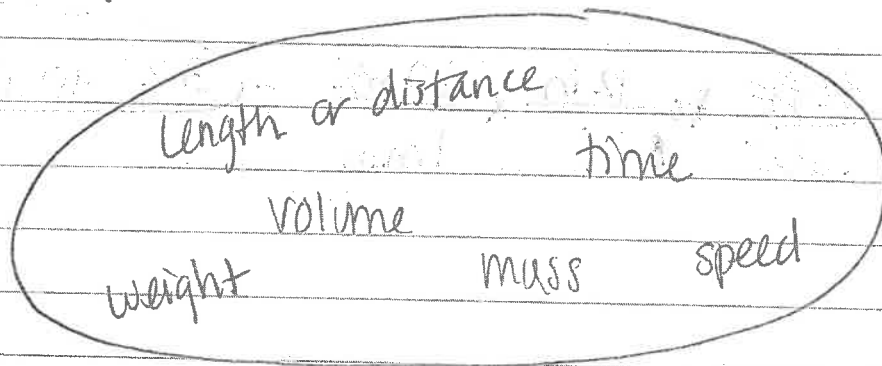 length or distance
time
volume
weight
mass
speed